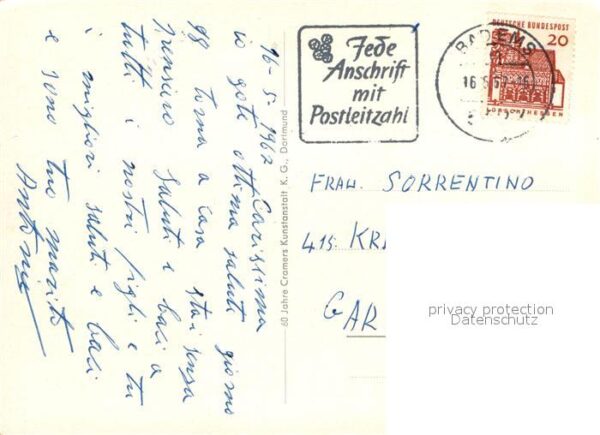 16-5-1967
Carissima
io godo ottima salute giorno
99 torno a casa stai senza
pensiero saluti e baci a
tutti i nostri figli e tu
i migliori saluti e baci
e sono tuo marito
Antonio
60 Jahre Cramers Kunstanstalt K. G., Dortmund
Jede
Anschrift
mit
Postleitzahl
BAD EMS
DEUTSCHE BUNDESPOST
20
LORSCH/HESSEN
FRAU. SORRENTINO
415 KR
GAR
privacy protection
Datenschutz